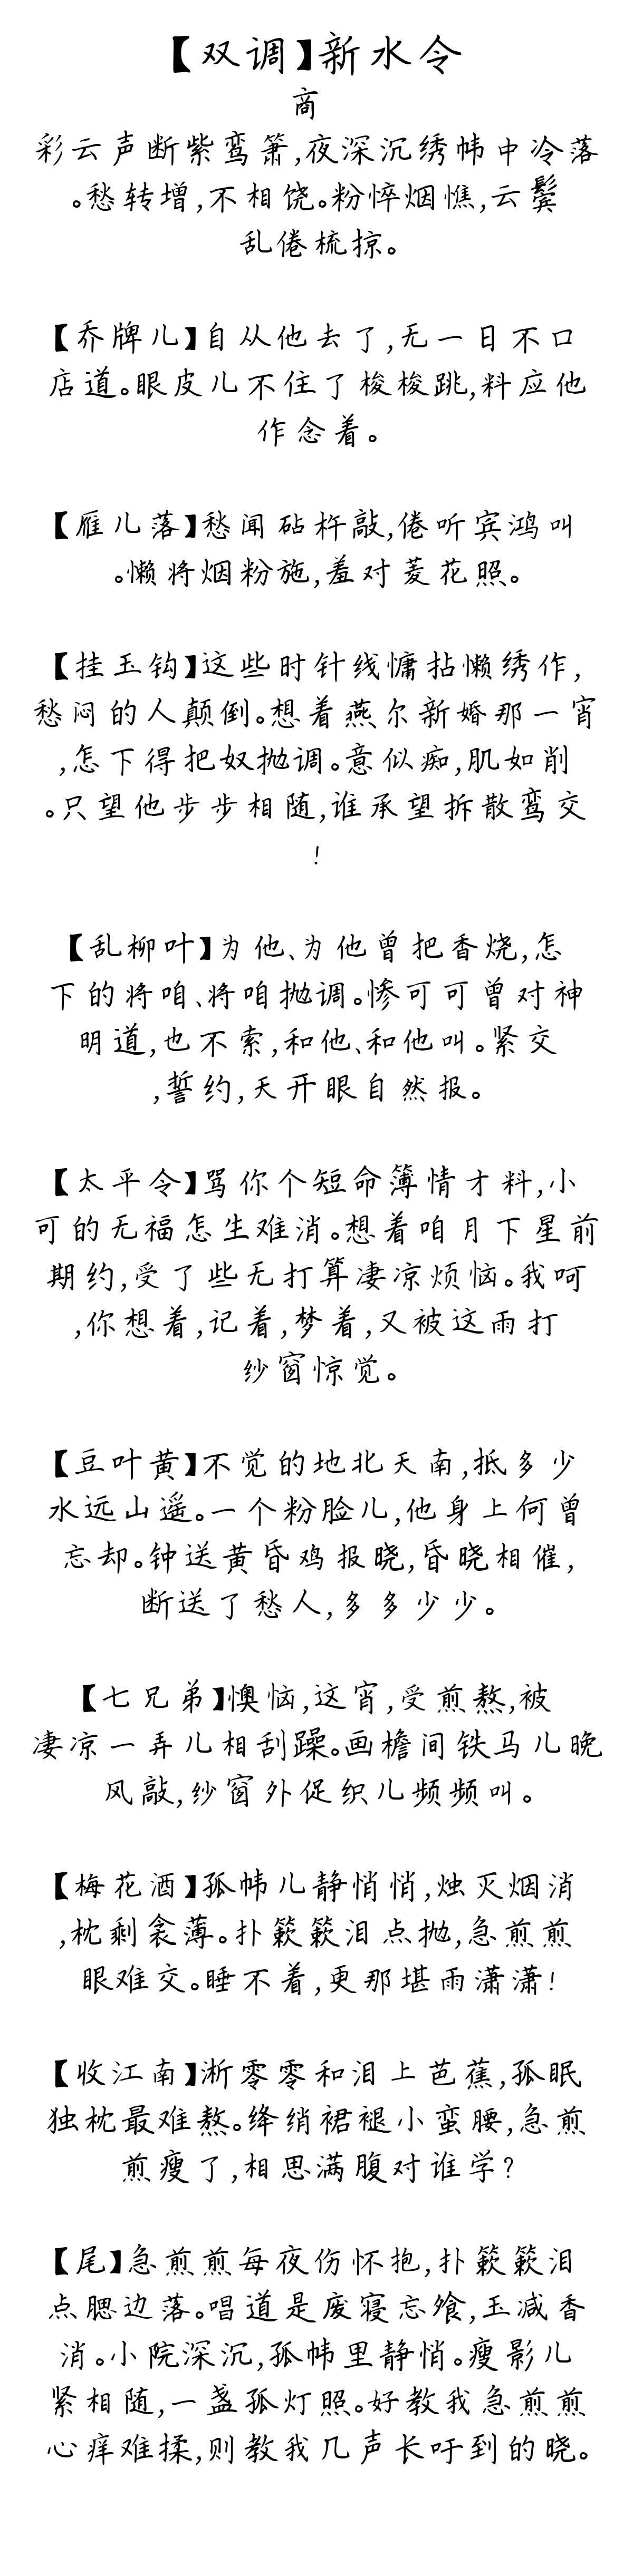 【双调】新水令
商
彩云声断紫鸾箫,夜深沉绣帏中冷落
。愁转增,不相饶。粉悴烟憔,云鬓
乱倦梳掠。
【乔牌儿】自从他去了,无一日不口
店道。眼皮儿不住了梭梭跳,料应他
作念着。
【雁儿落】愁闻砧杵敲,倦听宾鸿叫
。懒将烟粉施,羞对菱花照。
【挂玉钩】这些时针线慵拈懒绣作,
愁闷的人颠倒。想着燕尔新婚那一宵
,怎下得把奴抛调。意似痴,肌如削
。只望他步步相随,谁承望拆散鸾交
!
【乱柳叶】为他、为他曾把香烧,怎
下的将咱、将咱抛调。惨可可曾对神
明道,也不索,和他、和他叫。紧交
,誓约,天开眼自然报。
【太平令】骂你个短命簿情才料,小
可的无福怎生难消。想着咱月下星前
期约,受了些无打算凄凉烦恼。我呵
,你想着,记着,梦着,又被这雨打
纱窗惊觉。
【豆叶黄】不觉的地北天南,抵多少
水远山遥。一个粉脸儿,他身上何曾
忘却。钟送黄昏鸡报晓,昏晓相催,
断送了愁人,多多少少。
【七兄弟】懊恼,这宵,受煎熬,被
凄凉一弄儿相刮躁。画檐间铁马儿晚
风敲,纱窗外促织儿频频叫。
【梅花酒】孤帏儿静悄悄,烛灭烟消
,枕剩衾薄。扑簌簌泪点抛,急煎煎
眼难交。睡不着,更那堪雨潇潇!
【收江南】淅零零和泪上芭蕉,孤眠
独枕最难熬。绛绡裙褪小蛮腰,急煎
煎瘦了,相思满腹对谁学?
【尾】急煎煎每夜伤怀抱,扑簌簌泪
点腮边落。唱道是废寝忘飧,玉减香
消。小院深沉,孤帏里静悄。瘦影儿
紧相随,一盏孤灯照。好教我急煎煎
心痒难揉,则教我几声长吁到的晓。